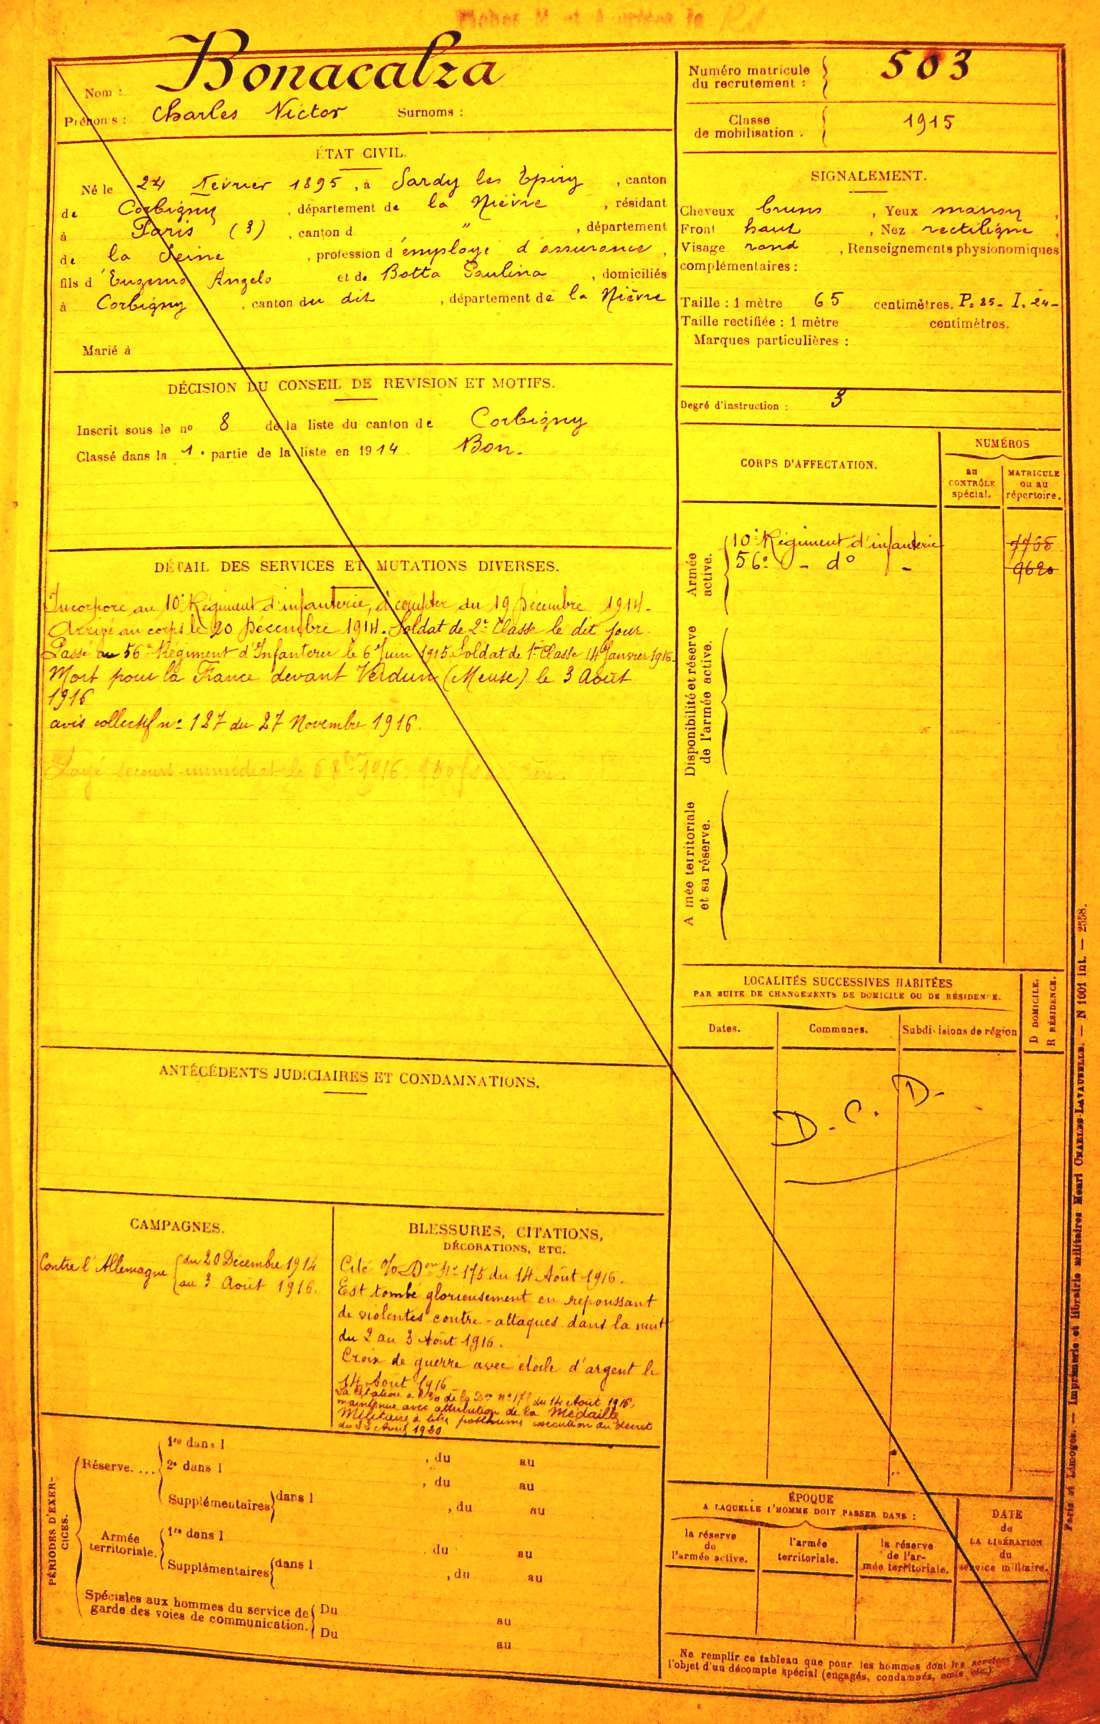 Nom : Bonacalza
Prénoms : Charles Victor Surnoms :
ÉTAT CIVIL.
Né le 24 Février 1895, à Sardy les Epiry, canton
de Corbigny, département de la Nièvre, résidant
à Paris (3), canton d ", département
de la Seine, profession d'employé d'assurance,
fils d'Eugenio Angelo et de Botta Paulina, domiciliés
à Corbigny, canton du dit, département de la Nièvre
Marié à
DÉCISION DU CONSEIL DE REVISION ET MOTIFS.
Inscrit sous le no 8 de la liste du canton de Corbigny
Classé dans la 1e partie de la liste en 1914 Bon.
DÉTAIL DES SERVICES ET MUTATIONS DIVERSES.
Incorporé au 10e Régiment d'infanterie, à compter du 19 Décembre 1914.
Arrivé au corps le 20 Décembre 1914. Soldat de 2e Classe le dit jour
Passé au 56e Régiment d'Infanterie le 6 Juin 1915 Soldat de 1e Classe 14 Janvier 1916.
Mort pour la France devant Verdun (Meuse) le 3 Août
1916
avis collectif no 127 du 27 Novembre 1916.
Payé secours immédiat le 6 8bre 1916
ANTÉCÉDENTS JUDICIAIRES ET CONDAMNATIONS.
CAMPAGNES.
Contre l'Allemagne { du 20 Décembre 1914
au 3 Août 1916.
BLESSURES, CITATIONS,
DÉCORATIONS, ETC.
Cité %o Don no 175 du 14 Août 1916.
Est tombé glorieusement en repoussant
de violentes contre-attaques dans la nuit
du 2 au 3 Août 1916.
Croix de guerre avec étoile d'argent le
14 Août 1916
La citation à l'%o de la Don no 175 du 14 Août 1916,
maintenue avec attribution de la Médaille
Militaire à titre posthume exécution du décret
du Avril 1920
PÉRIODES D'EXERCICES.
Réserve. ... { 1re dans l , du au
2e dans l , du au
Supplémentaires { dans l , du au
Armée territoriale. { 1re dans l , du au
Supplémentaires { dans l , du au
Spéciales aux hommes du service de { Du au
garde des voies de communication. { Du au
Numéro matricule
du recrutement : { 503
Classe
de mobilisation . { 1915
SIGNALEMENT.
Cheveux bruns, Yeux marron,
Front haut, Nez rectiligne,
Visage rond, Renseignements physionomiques
complémentaires :
Taille : 1 mètre 65 centimètres. P. 25 - I. 24 -
Taille rectifiée : 1 mètre centimètres.
Marques particulières :
Degré d'instruction : 3
CORPS D'AFFECTATION.
NUMÉROS
au
CONTRÔLE
spécial.
MATRICULE
ou au
répertoire.
Armée
active.
10e Régiment d'infanterie
56e - do -
9620
Disponibilité et réserve
de l'armée active.
Armée territoriale
et sa réserve.
LOCALITÉS SUCCESSIVES HABITÉES
PAR SUITE DE CHANGEMENTS DE DOMICILE OU DE RÉSIDENCE.
Dates. Communes. Subdivisions de région
D DOMICILE.
R RÉSIDENCE.
D.C.D.
ÉPOQUE
A LAQUELLE L'HOMME DOIT PASSER DANS :
la réserve
de
l'armée active.
l'armée
territoriale.
la réserve
de l'ar-
mée territoriale.
DATE
de
LA LIBÉRATION
du
service militaire.
Ne remplir ce tableau que pour les hommes dont les services
l'objet d'un décompte spécial (engagés, condamnés, omis, etc.)
Paris et Limoges. — Imprimerie et librairie militaires Henri CHARLES-LAVAUZELLE. — N 1001 int. — 2558.